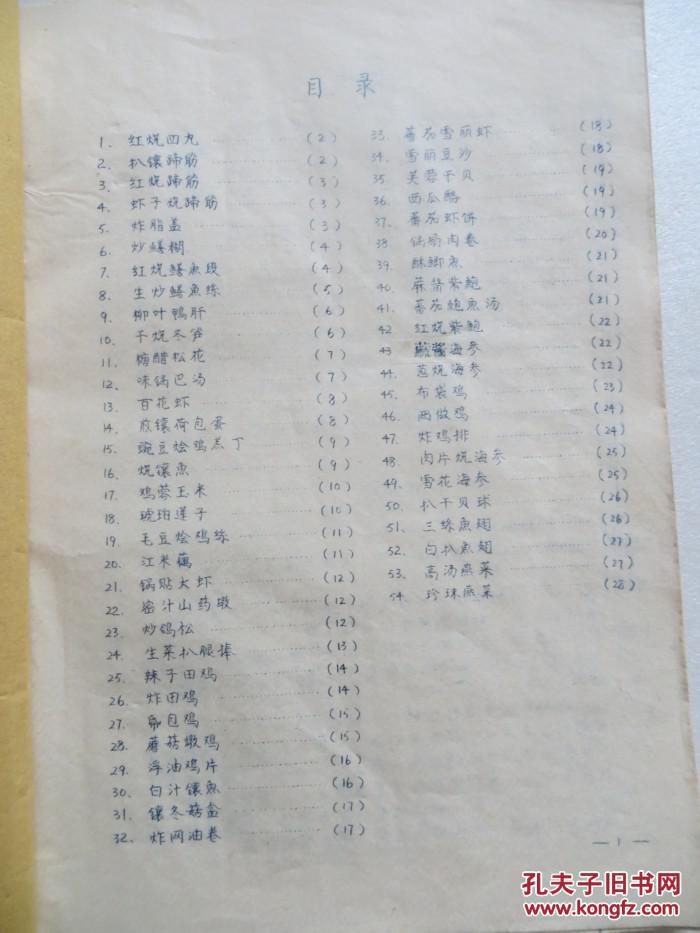 目录
1. 红烧四丸 (2)
2. 扒镶蹄筋 (2)
3. 红烧蹄筋 (3)
4. 虾子烧蹄筋 (3)
5. 炸脂盖 (3)
6. 炒鳝糊 (4)
7. 红烧鳝鱼段 (4)
8. 生炒鳝鱼练 (5)
9. 柳叶鸭肝 (6)
10. 干烧冬笋 (6)
11. 糖醋松花 (7)
12. 味锅巴汤 (7)
13. 百花虾 (8)
14. 煎镶荷包蛋 (8)
15. 豌豆烩鸡羔丁 (9)
16. 烧镶鱼 (9)
17. 鸡蓉玉米 (10)
18. 琥珀莲子 (10)
19. 毛豆烩鸡练 (11)
20. 江米藕 (11)
21. 锅贴大虾 (12)
22. 密汁山药墩 (12)
23. 炒鸽松 (12)
24. 生菜扒腿棒 (13)
25. 辣子田鸡 (14)
26. 炸田鸡 (14)
27. 包鸡 (15)
28. 蘑菇墩鸡 (15)
29. 浮油鸡片 (16)
30. 白汁镶鱼 (16)
31. 镶冬菇盒 (17)
32. 炸网油卷 (17)
33. 蕃茄雪丽虾 (18)
34. 雪丽豆沙 (18)
35. 芙蓉干贝 (19)
36. 西瓜酪 (19)
37. 蕃茄虾饼 (19)
38. 锅扇肉卷 (20)
39. 酥鲫鱼 (21)
40. 麻酱紫鲍 (21)
41. 蕃茄鲍鱼汤 (21)
42. 红烧紫鲍 (22)
43. 海参 (22)
44. 葱烧海参 (22)
45. 布袋鸡 (23)
46. 两做鸡 (24)
47. 炸鸡排 (24)
48. 肉片烧海参 (25)
49. 雪花海参 (25)
50. 扒干贝球 (26)
51. 三丝鱼翅 (26)
52. 白扒鱼翅 (27)
53. 高汤燕菜 (27)
54. 珍珠燕菜 (28)
— 1 —
孔夫子旧书网
www.kongfz.com